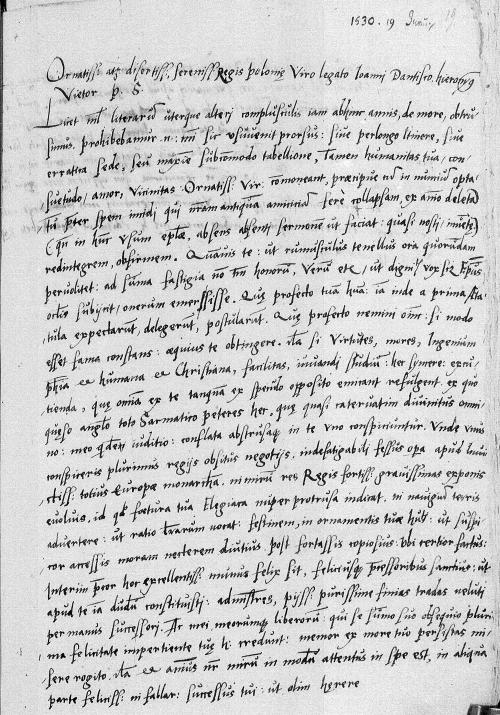 1530. 19 Junij 19
Ornatiss: atq; disertiss, sereniss Regis polonię Viro legato Ioanni Dantisco, hieronym9
Victor p. S.
Licet nil literarū uterque alterj complusculis iam abhinc annis, de more, obtru
simus. prohibebamur n: nr̄ sic usuuenit prorsus: siue perlongo Itinere, siue
erratica sede, seu maxīe subcomodo tabellione, Tamen humanitas tua, con
suetudo, amor, vicinitas Ornatiss: Vir: comoneant, pręcipue cū in nunciū opta
tū pter spem incidj, qui nr̄am antiquā amiciciā ferè collapsam, ex aīo deletā
(Qn in hūc usum eplę, absens absentj sermonē ut faciat: quasi nostj,
redintegrem, obfirmem. Quamuis te: ut rumusculus tenellus ora quorūdam
peruolitet: ad sūma fastigia no tm̄ honorū, Verū etc, ut digni9 vox sit Ep̄us
oclis subijcit, onerum emersisse. Quę profecto tua hūa: ia inde a prima,
tula expectarūt, delegerūt, postularūt. Quę profecto nemini oīm: si modo
esset fama constans: æquius te obtingere. Ita si Virtutes, mores, Ingenium
humana et Christiana, facilitas, iuuandi studiū: her synere: excu
tienda, quę omīa ex te tanquā ex speculo opposito emicant refulgent. ex quo
quęso anglo toto Sarmatico peteres her, quę quasi cateruatim diuinitus omni
no: meo qdem iuditio: conflata abstrusaq; in te uno conspiciuntur. Unde unus
conspiceris plurimis regijs obsitus negotijs, indefatigabili fessus opa apud Inui
ctiss: totius Europę monarchā. nimirū res Regis fortiss: grauissimas exponis
euoluis, id qd foetura tua Elegiaca nuper protrusa indicat. ni nauigiū terris
aduertere: ut ratio lr̄arum uocat: festinem, in ornamentis tuę hūt: ut suspi
cor accessis moram necterem diutius. post fortassis copiosius: ubi certior factus:
Interim pcor hoc excellentiss: munus felix sit, feliciusq; pcessoribus sanctius: ut
apud te ia dudū constituistj: admistres, pijss: purissime finias tradas uelutj
per manus successorj. Ac mei meorumq; liberorū: qui se sūmo suo obsequio pluri
ma felicitate impertiente tuę h: credunt: memor ex more tuo persistas mi
sere rogito. Ita et amus nr mirū in modū attentus in spe est, in aliqua
parte feliciss: ni fallar: successus tui: ut olim hęrere